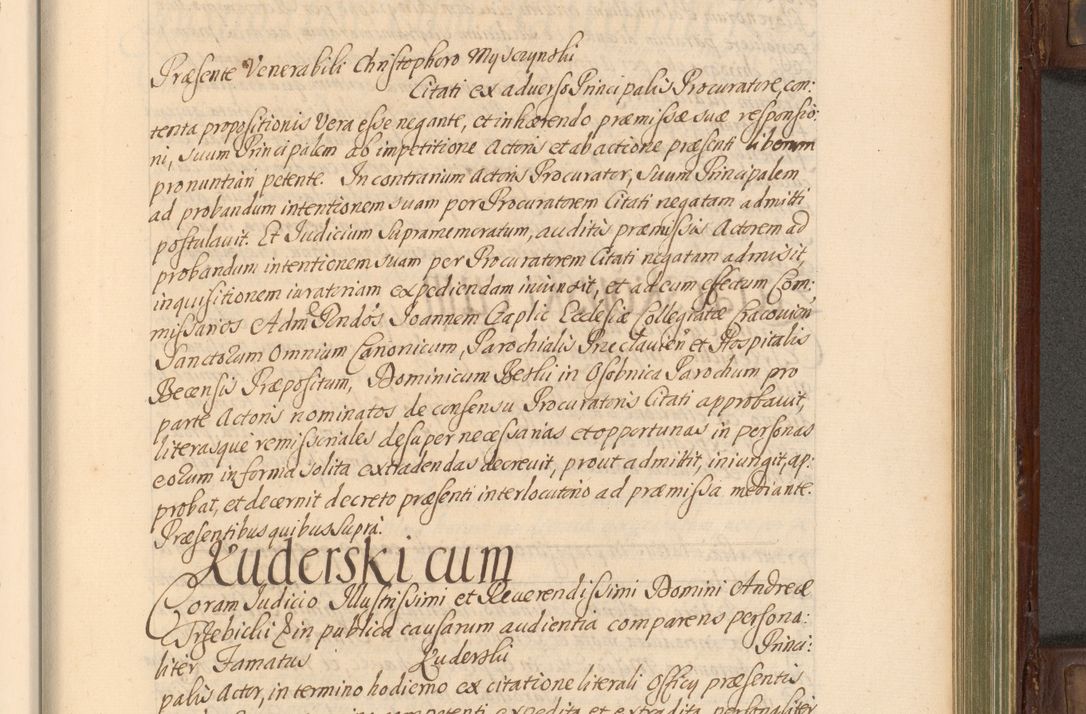 Præsente Venerabili Christophoro Myszynski
Citati ex adverso Principalis Procuratore, con:
tenta propositionis vera esse negante, et inhærendo præmissæ suæ responsio:
ni, suum Principalem ab impetitione Actoris et ab actione præsenti liberum
pronuntiari petente. In contrarium Actoris Procurator, suum Principalem
ad probandum intentionem suam per Procuratorem Citati negatam admitti
postulavit. Et Judicium supramemoratum, auditis præmissis Actorem ad
probandum intentionem suam per Procuratorem Citati negatam admisit,
inquisitionem iuratoriam expediendam iniunxit, et ad eum effectum Com:
missarios Adm Rndos Joannem Czaplic Ecclesiæ Collegiatæ Cracovien
Sanctorum Omnium Canonicum, Parochialis et Hospitalis
Becensis Præpositum, Dominicum Beski in Osobnica Parochum pro
parte Actoris nominatos de consensu Procuratoris Citati approbavit,
literasque remissoriales desuper necessarias et opportunas in personas
eorum in forma solita extradendas decrevit, prout admittit, iniungit, ap:
probat, et decernit decreto præsenti interlocutorio ad præmissa mediante.
Præsentibus quibus supra.
Kuderski cum
Coram Judicio Illustrissimi et Reverendissimi Domini Andreæ
Trzebicki & in publica causarum audientia comparens persona:
liter Famatus Kuderski Princi:
palis Actor, in termino hodierno ex citatione literali Officij præsentis
competenti expedita et extradita personaliter